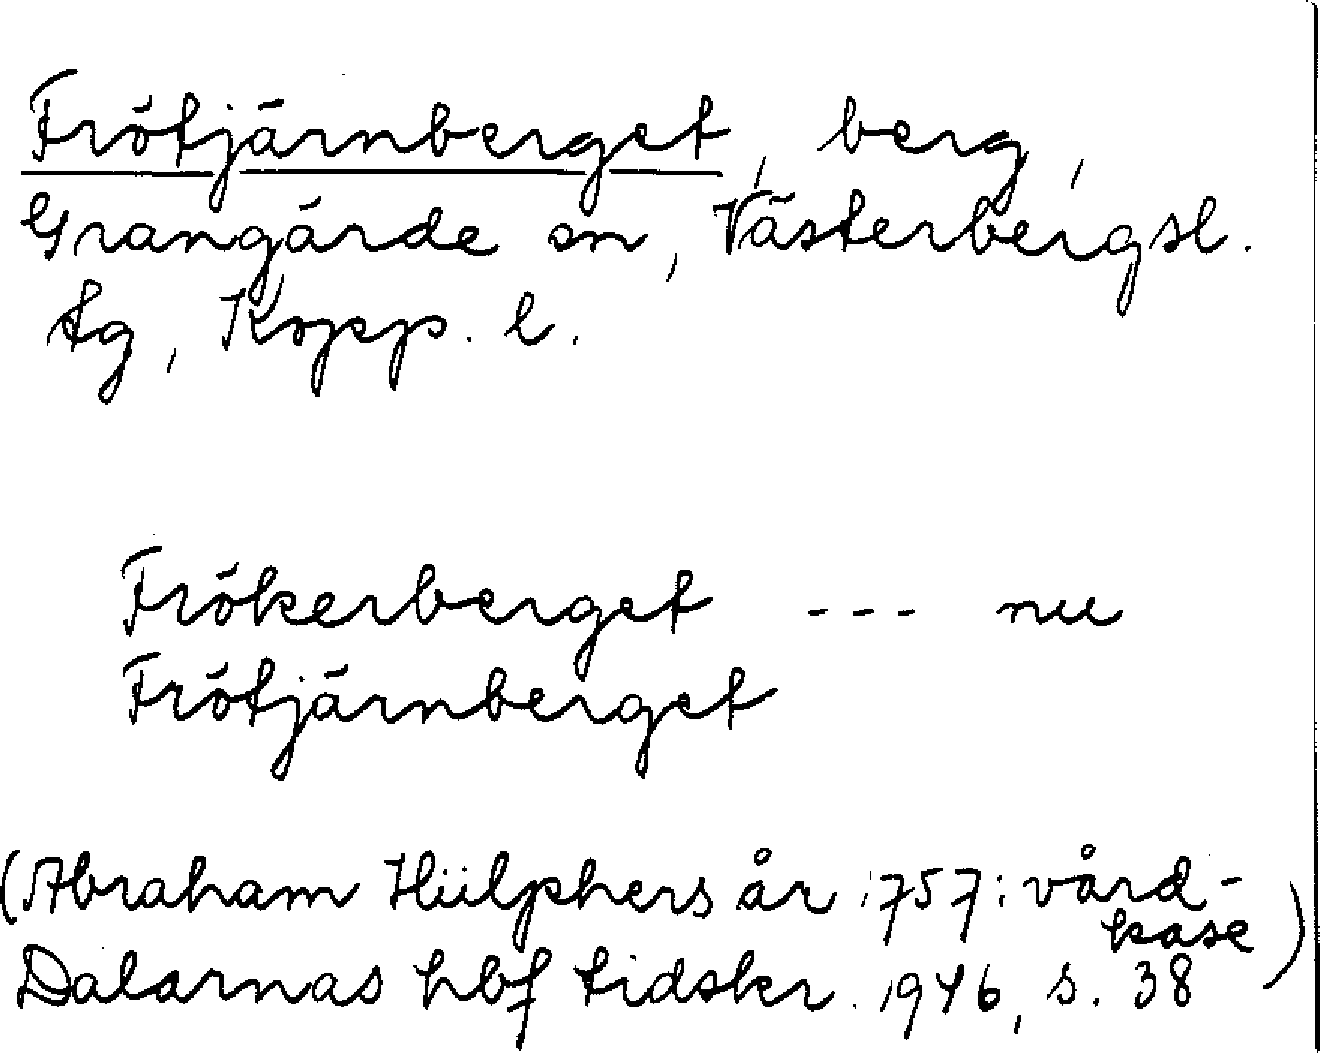 Frötjärnberget, berg,
Grangärde sn, Västerbergsl.
tg, Kopp. l.
Frökerberget --- nu
Frötjärnberget
(Abraham Hülphers år 1757: vård-
kase)
Dalarnas hbf tidskr. 1946, s. 38